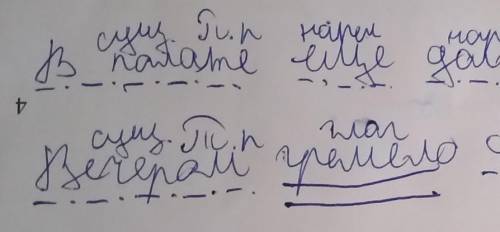 сущ. П.п нареч нар
В палате еще дал
4
сущ. Т.п глаг
Вечером гремело